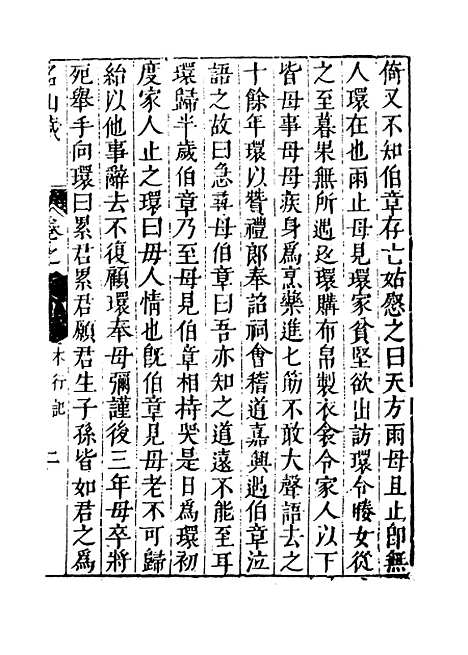 倚又不知伯章存亡姑慰之曰天方雨母且止卽無
人環在也雨止母見環家貧堅欲出訪環令媵女從
之至暮果無所遇迄環購布帛製衣衾令家人以下
皆母事母母疾身爲烹藥進七筋不敢大聲語去之
十餘年環以贊禮郎奉詔祠會稽道嘉興遇伯章泣
語之故曰急尋母伯章曰吾亦知之道遠不能至耳
環歸半歲伯章乃至母見伯章相持哭是日爲環初
度家人止之環曰毋人情也旣伯章見母老不可歸
紿以他事辭去不復顧環奉母彌謹後三年母卒將
死舉手向環曰累君累君願君生子孫皆如君之爲
名山藏 卷之 本行記 二